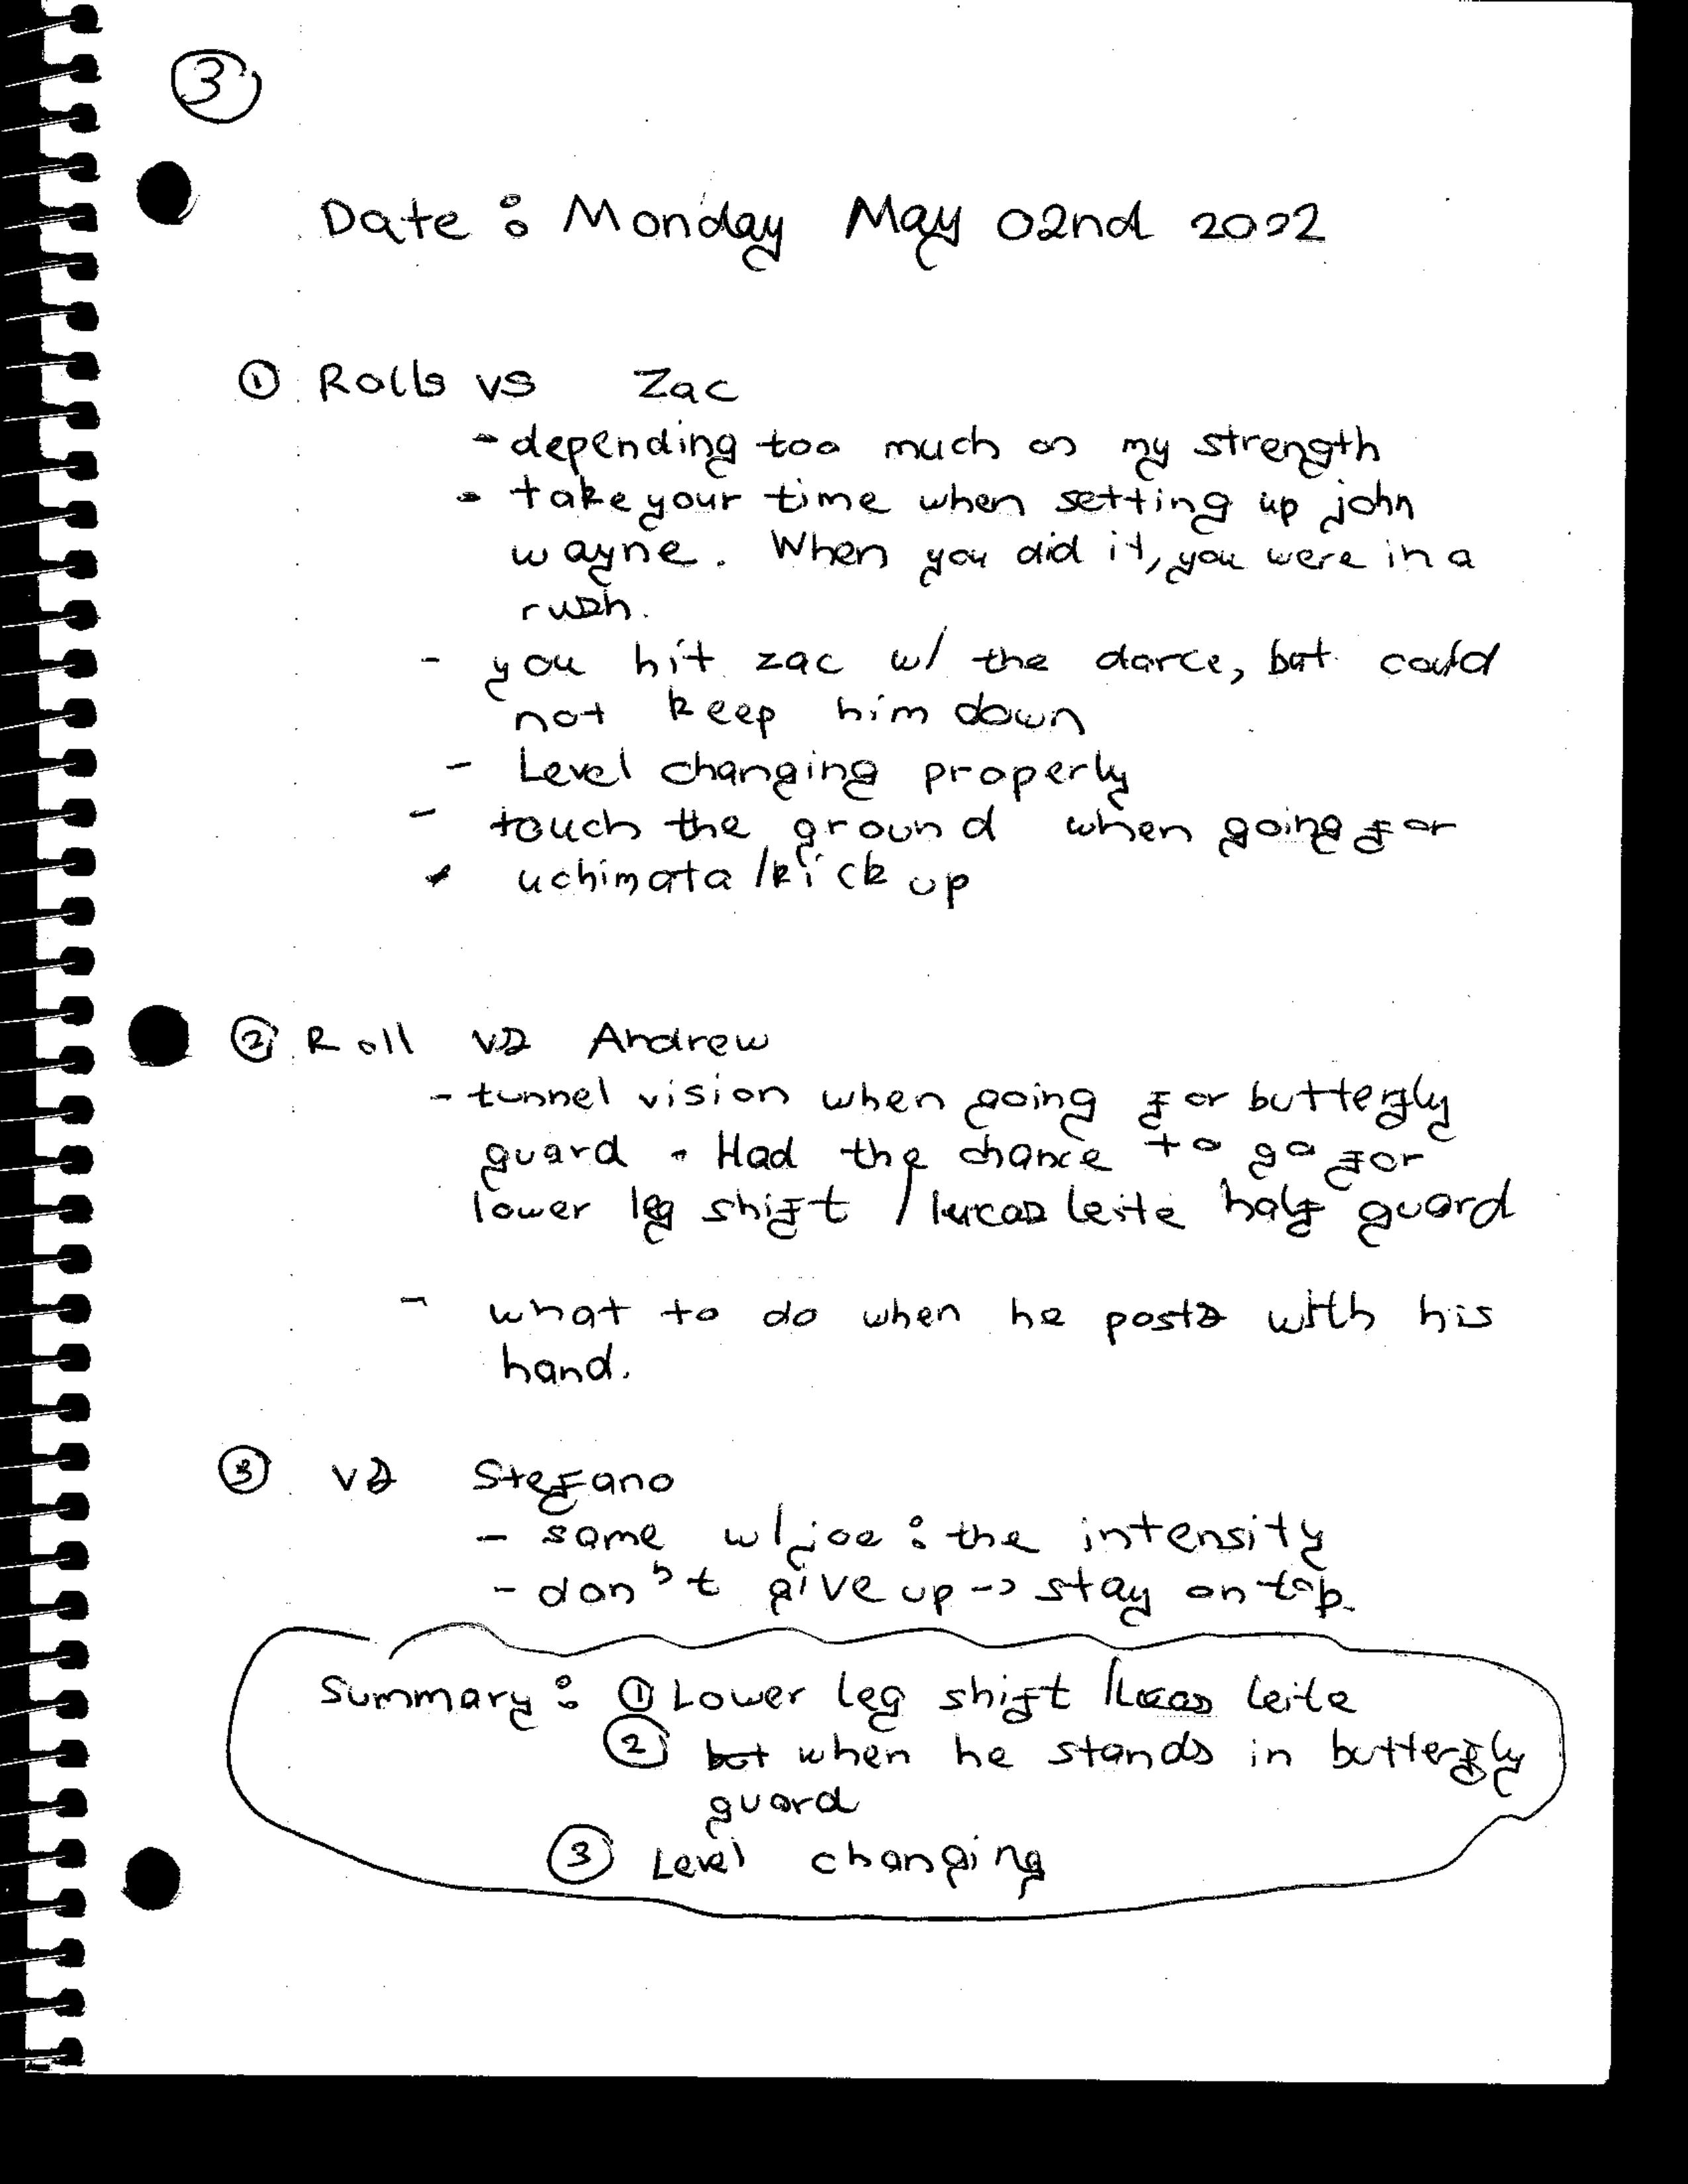 3
Date : Monday May 02nd 2022
① Rolls vs Zac
- depending too much on my strength
- take your time when setting up john
wayne. When you did it, you were in a
rush.
- you hit zac w/ the darce, but could
not keep him down
- Level changing properly
- touch the ground when going for
- uchimata/kick up
② Roll vs Andrew
- tunnel vision when going for butterfly
guard. Had the chance to go for
lower leg shift / lucas leite half guard
- what to do when he posts with his
hand.
③ vs Stefano
- same w/ joe : the intensity
- don't give up -> stay on top.
Summary : ① Lower leg shift / lucas leite
② but when he stands in butterfly
guard
③ Level changing